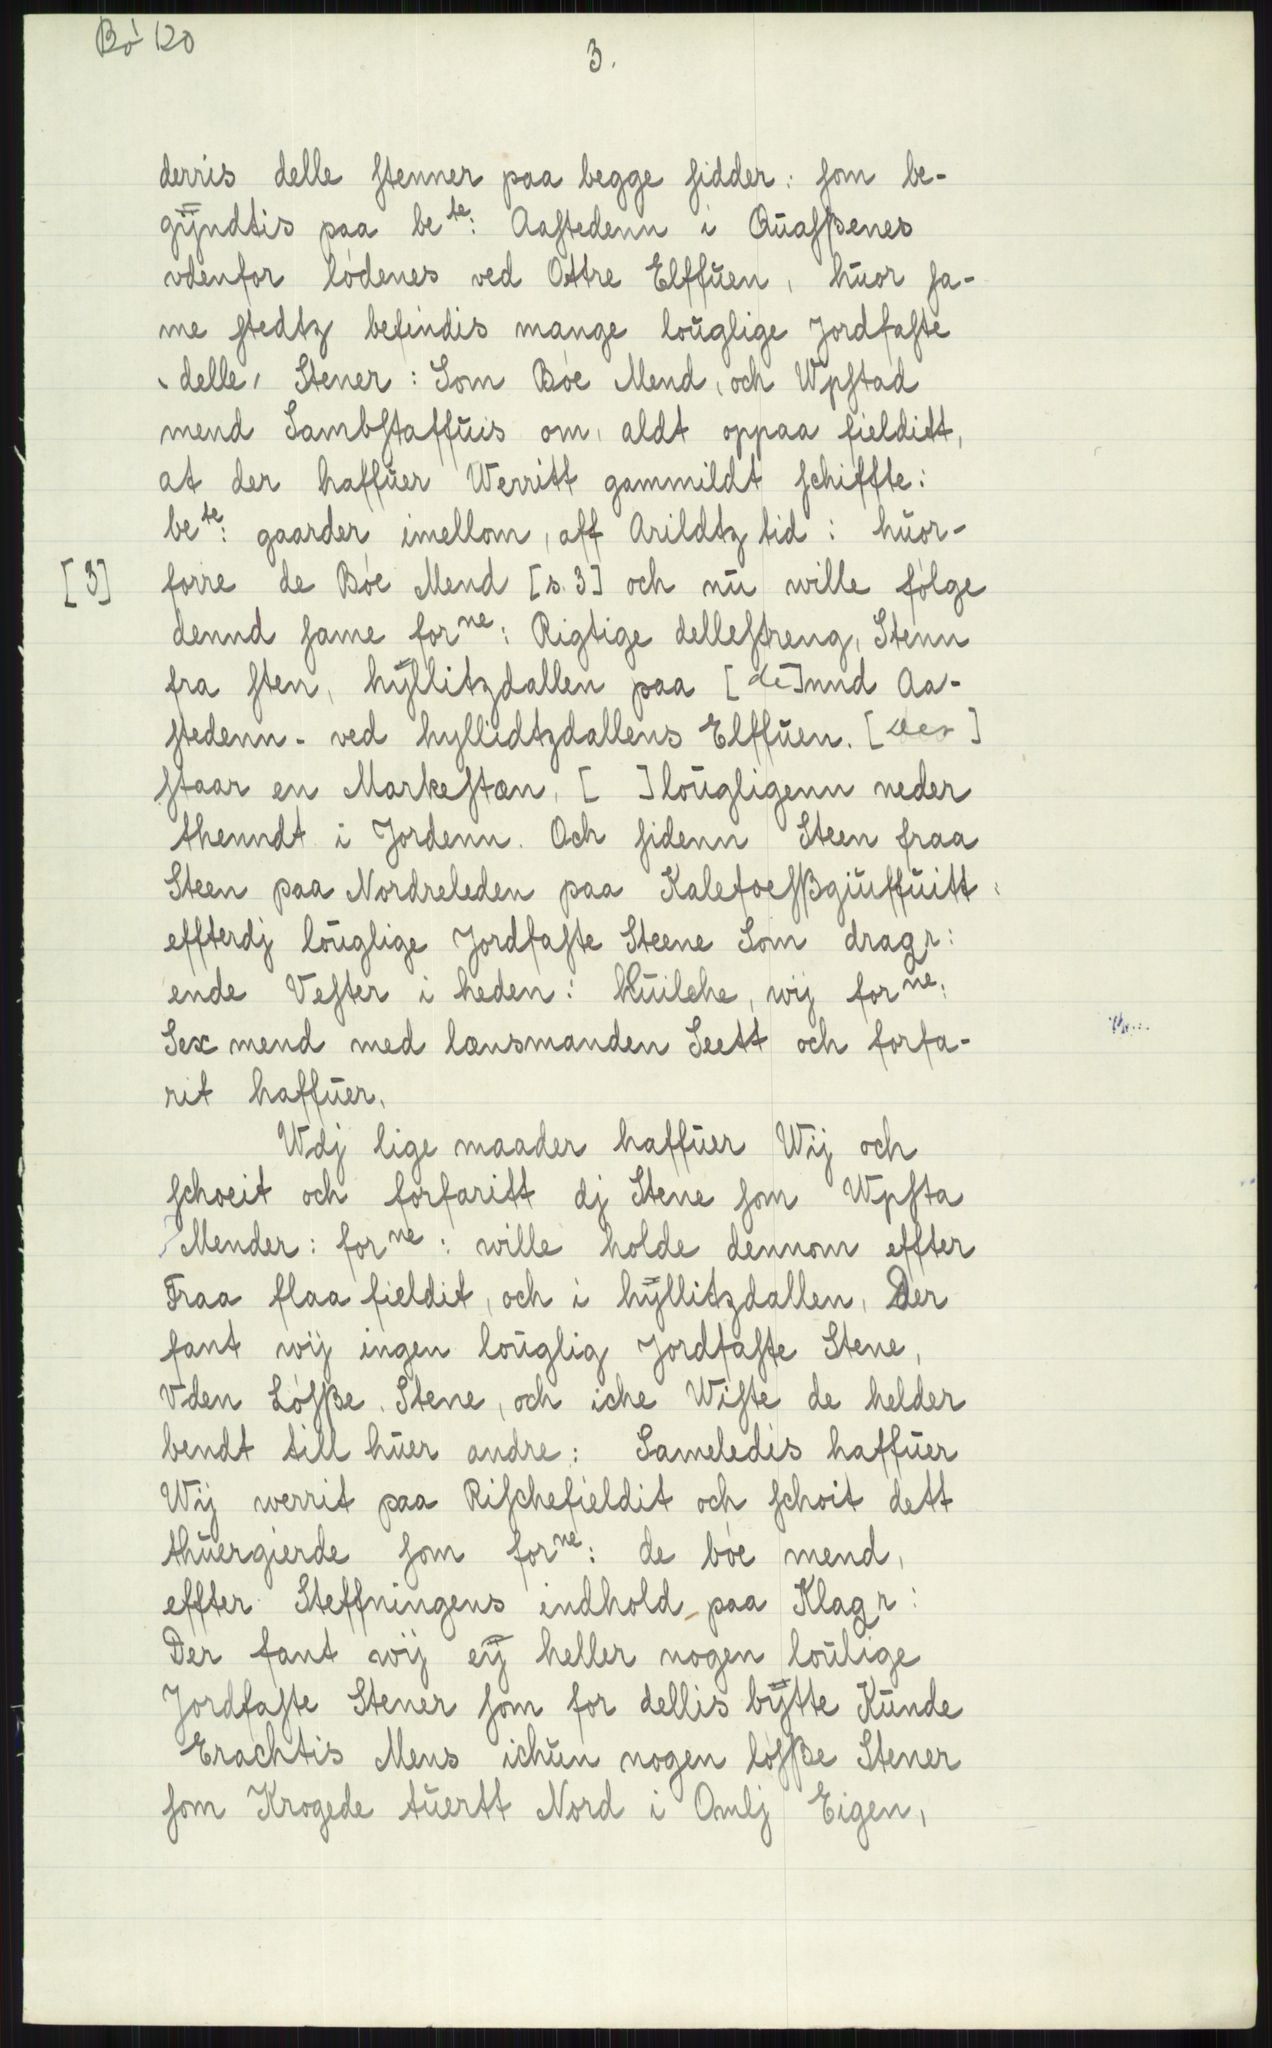 Bó 120
3.
derris delle stenner paa begge sidder: som be-
gÿndtis paa be^te: Aastedenn i Quasßenes
vdenfor lódenes ved Ottre Elffuen, huor sa-
me stedtz befindis mange louglige Jordfaste
delle, Stener: Som Bóe Mend, och Wpstad
mend Sambstaffuis om, aldt oppaa fielditt,
at der haffuer Werritt gammildt schiffte:
be^te: gaarder imellom, aff Arildtz tid: huor-
[3] forre de Bóe Mend [s. 3] och nu wille fólge
dennd same for^ne: Rigtige dellestreng, Stenn
fra sten, hÿllitzdallen paa [de]nnd Aa-
stedenn - ved hyllidtzdallens Elffuen. [der]
staar en Markestæn, [ ] lougligenn neder
thenndt i Jordenn. Och sidenn Steen fraa
Steen paa Nordreleden paa Kalefoesßgiuffuitt:
effterdj louglige Jordfaste Steene Som dragr:
ende Vester i heden: huilche, wij for^ne:
Sex mend med lænsmanden Seett och forfa-
rit haffuer.
Wdj lige maader haffuer Wij och
schoeit och forfaritt dj Stene som Wpsta
Mender: for^ne: wille holde dennom effter
Fraa flaa fieldit, och i hÿllitzdallen, Der
fant wij ingen louglig Jordfaste Stene,
Vden Lósße. Stene, och iche Wiste de helder
bendt till huer andre: Sameledis haffuer
Wij werrit paa Rischefieldit och schoit dett
thuergierde som for^ne: de bóe mend,
effter Steffningens indhold paa Klagr:
Der fant wij eÿ heller nogen loulige
Jordfaste Stener som for dellis bÿtte Kunde
Erachtis Mens ichun nogen lósße Stener
som Krogede tuertt Nord i Omlj Eigen,